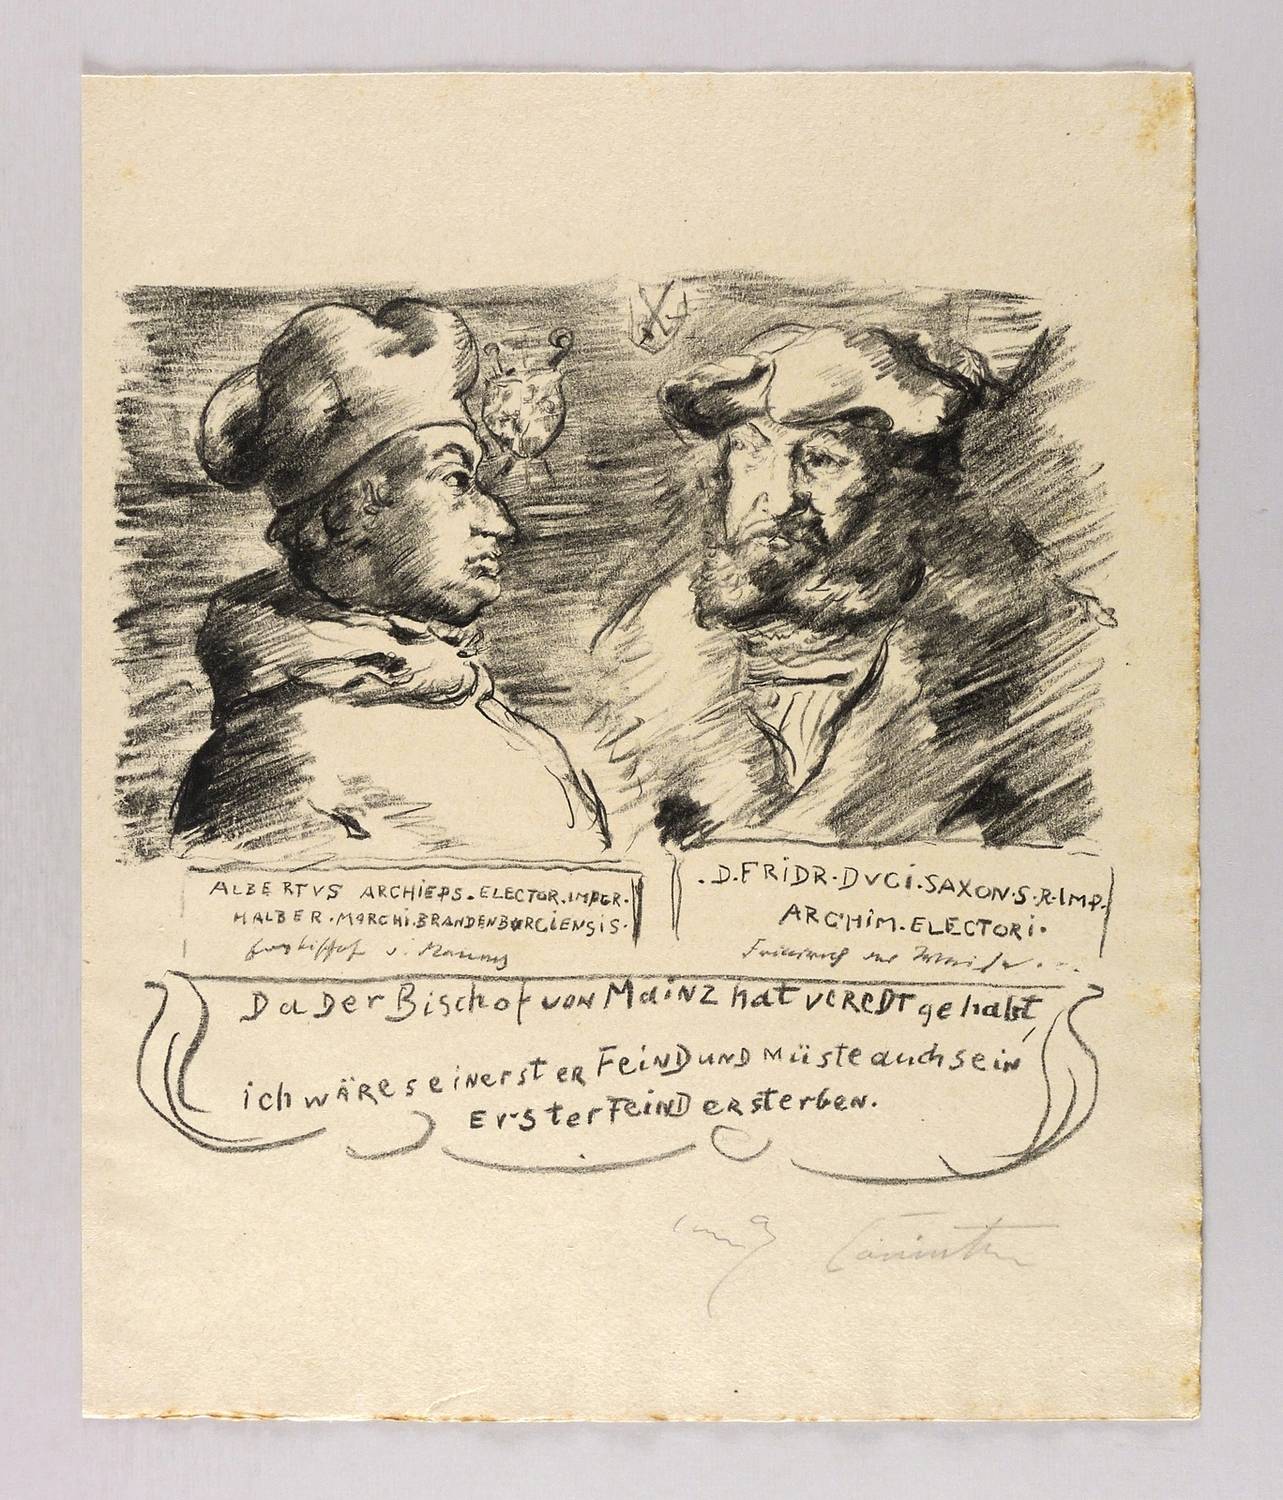 ALBERTVS ARCHIEPS. ELECTOR. IMPER.
HALBER. MARCHI. BRANDENBURGIENSIS.
.D. FRIDR. DVCI. SAXON. S. R. IMP.
ARCHIM. ELECTORI.
Friedrich der Weise
Da Der Bischof von Mainz hat veredt gehabt,
ich wäre seinerster Feind und müste auch sein
Erster Feind ersterben.
Lovis Corinth